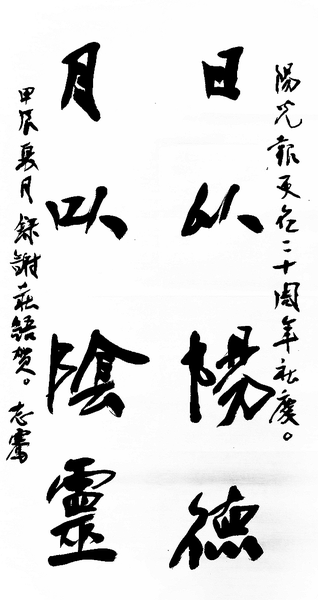 陽光報更名二十周年社慶。
日以陽德
月以陰靈
甲辰夏月錄謝莊語賀。志